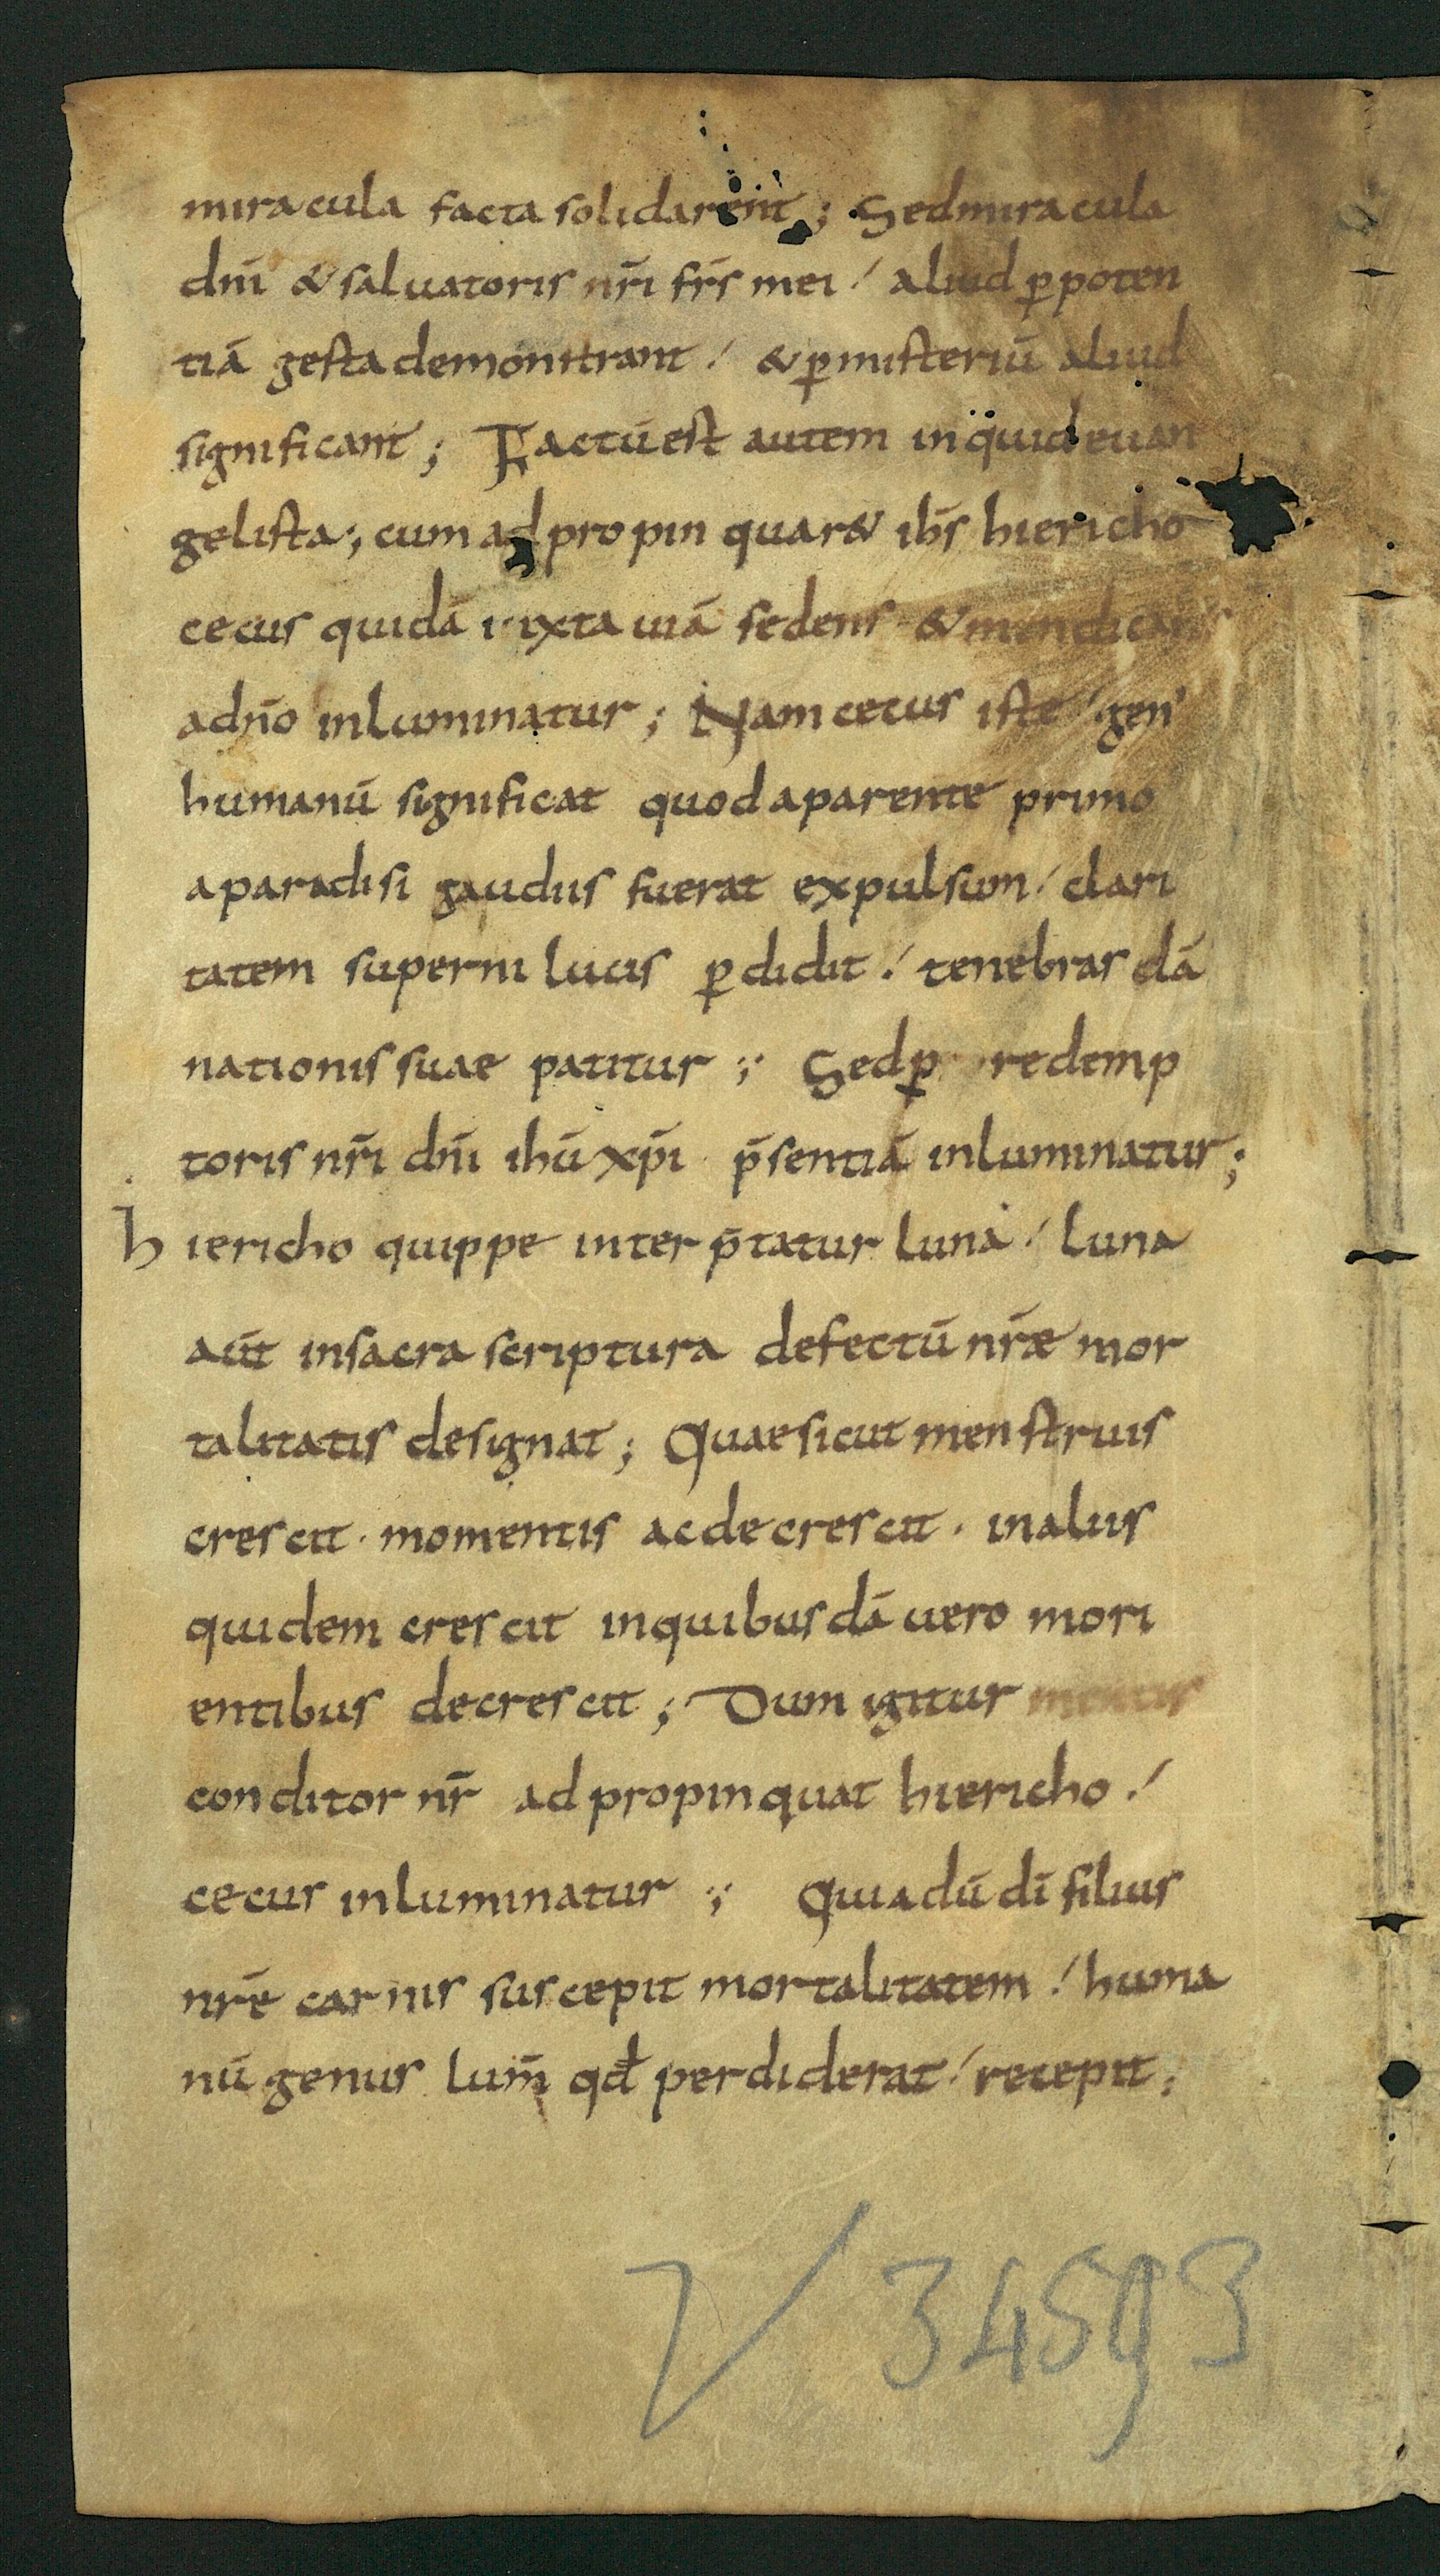 miracula facta solidarent; Sed miracula
dn̄i & saluatoris nr̄i fr̄s mei / aliud ꝑ poten
tiā gesta demonstrant / & ꝑ misteriū aliud
significant; Factū est autem inquid euan
gelista; cum adpropinquar& ih̄s hiericho
cecus quidā iuxta uiā sedens & mendicans
a dn̄o inluminatur; Nam cecus iste gen'
humanū significat quod a parente primo
a paradisi gaudiis fuerat expulsum / clari
tatem superni lucis ꝑdidit / tenebras dā
nationis suae patitur; Sed ꝑ redemp
toris nr̄i dn̄i ihū xp̄i p̄sentiā inluminatur;
hiericho quippe interp̄tatur luna / luna
aūt in sacra scriptura defectū nr̄ae mor
talitatis designat; Quae sicut menstruis
crescit · momentis ac decrescit · in aliis
quidem crescit in quibusdā uero mori
entibus decrescit; Dum igitur
conditor nr̄ adpropinquat hiericho /
cecus inluminatur; Quia dū dī filius
nr̄ē carnis suscepit mortalitatem / huma
nū genus lum̄ qđ perdiderat / recepit;
V 34593